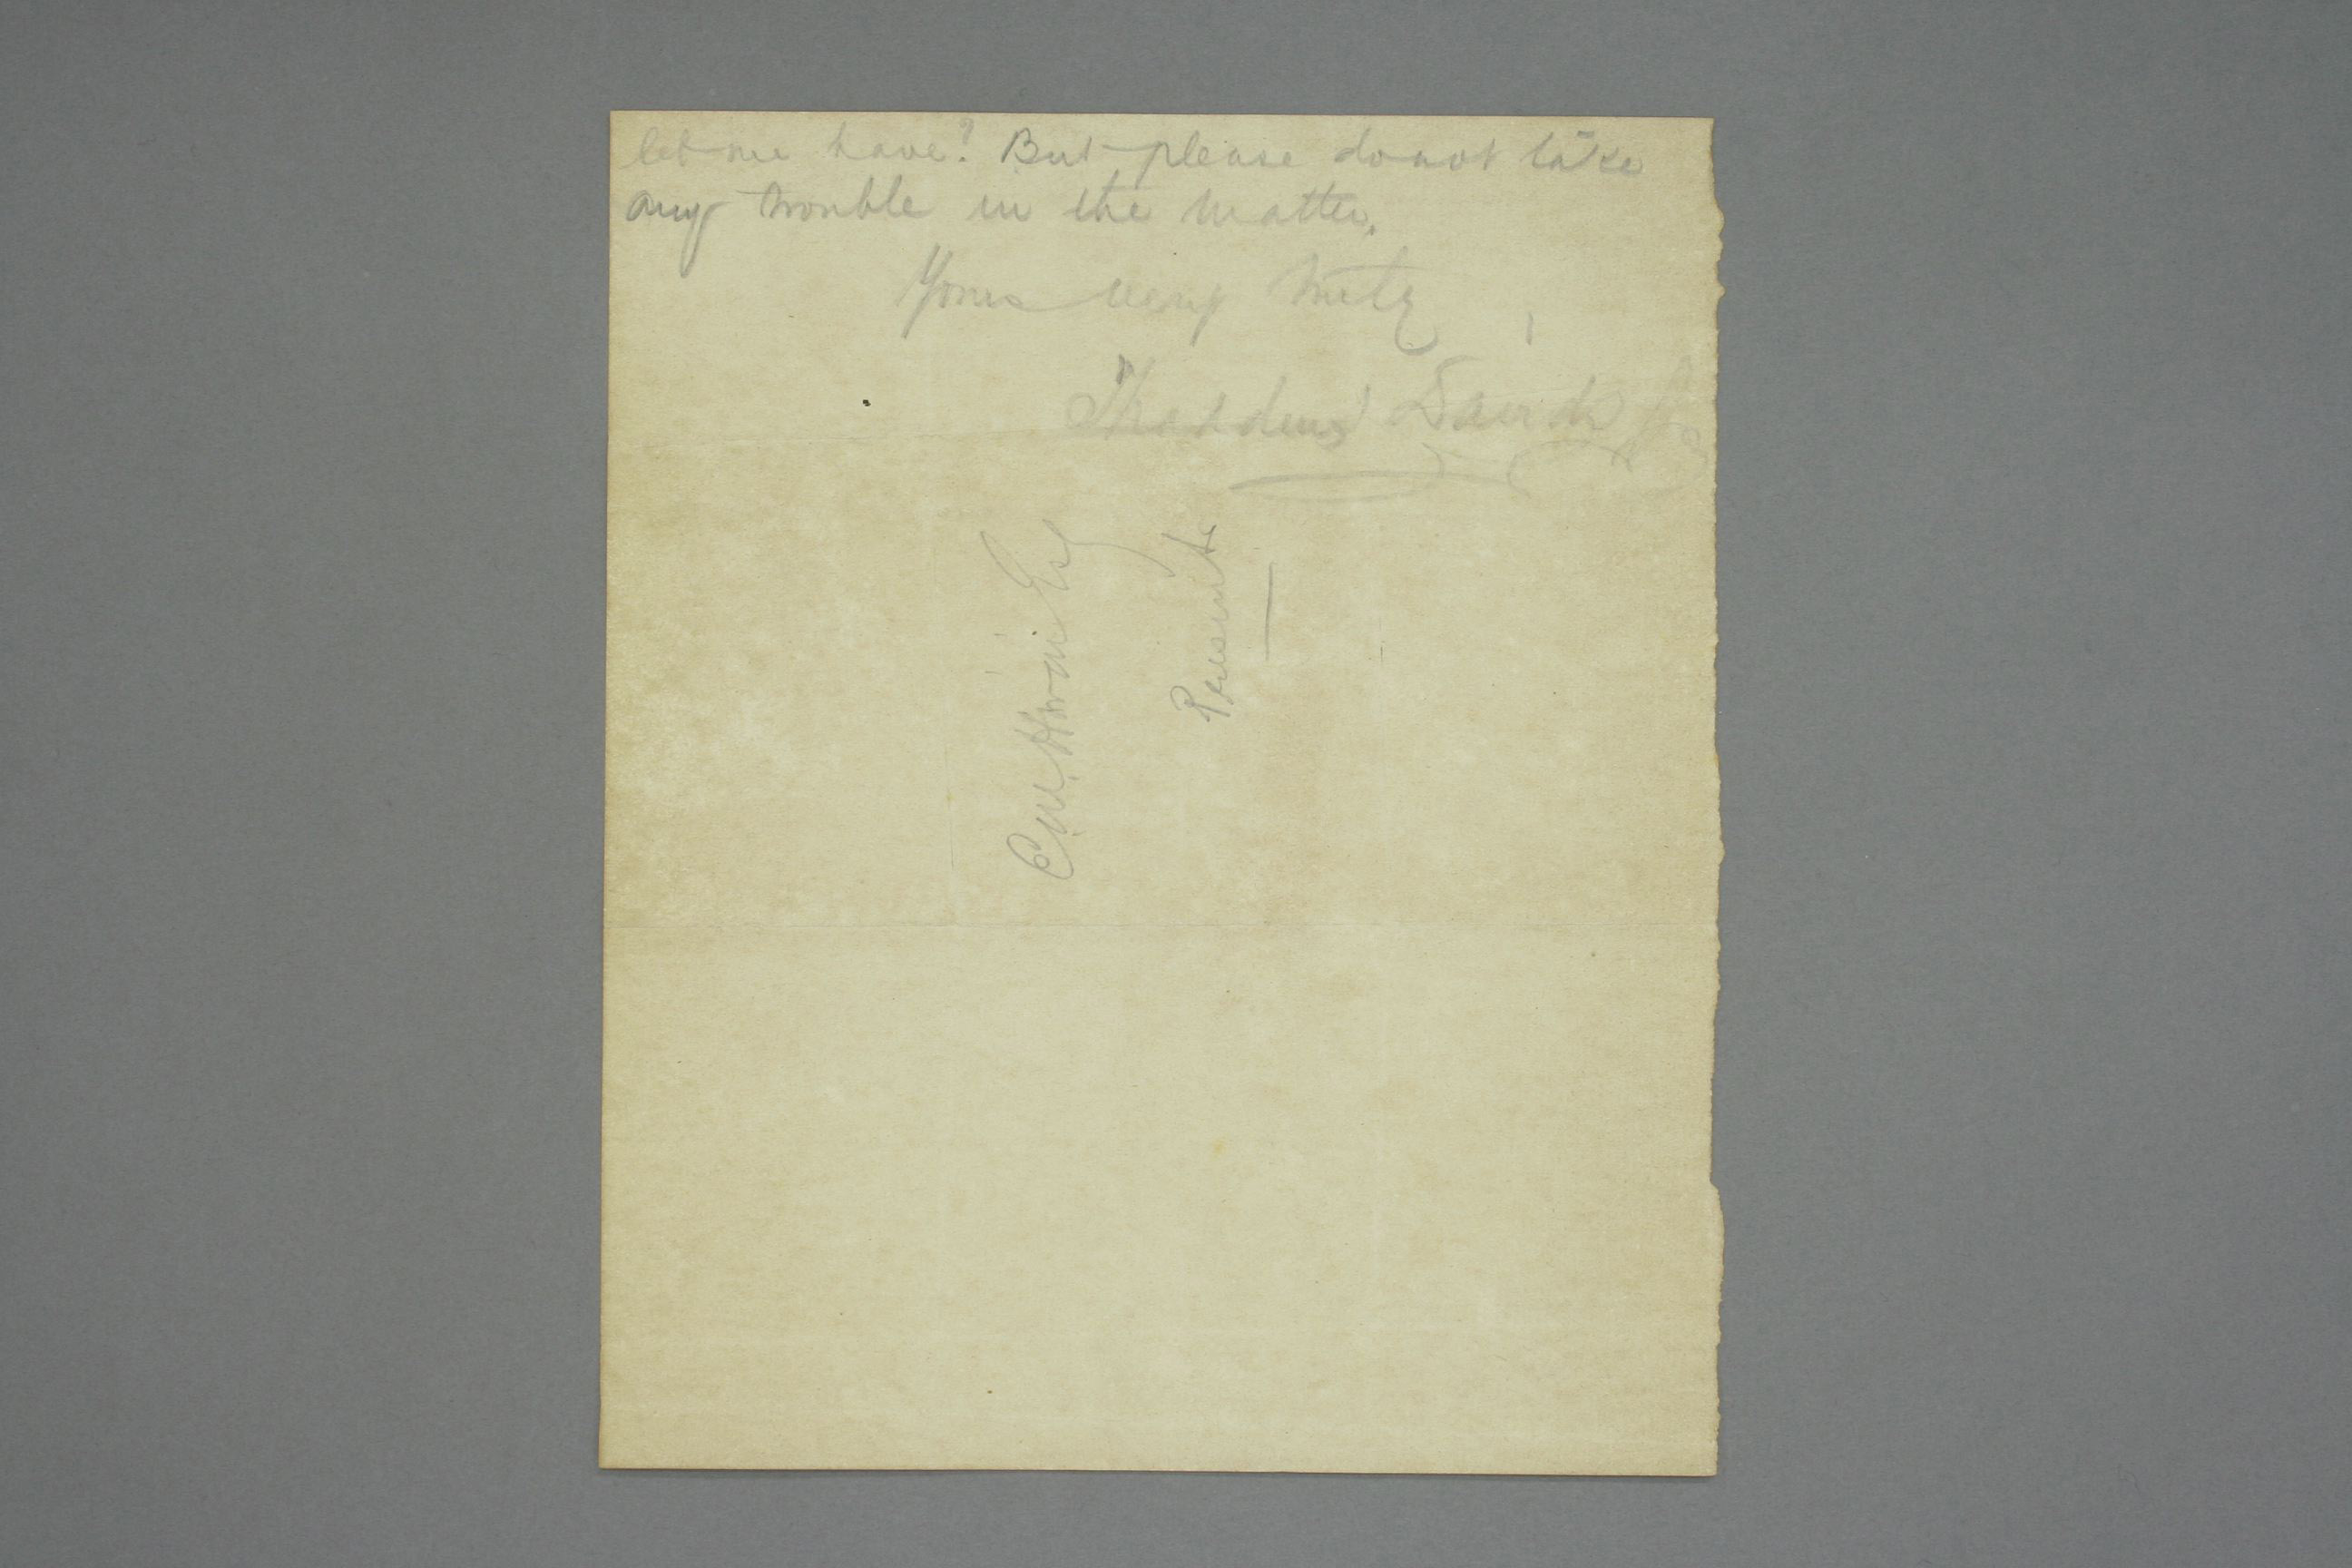 let me have? But please do not take
any trouble in the matter.
Yours very truly
Thaddeus Davids Jr
C.W. Esq
Present